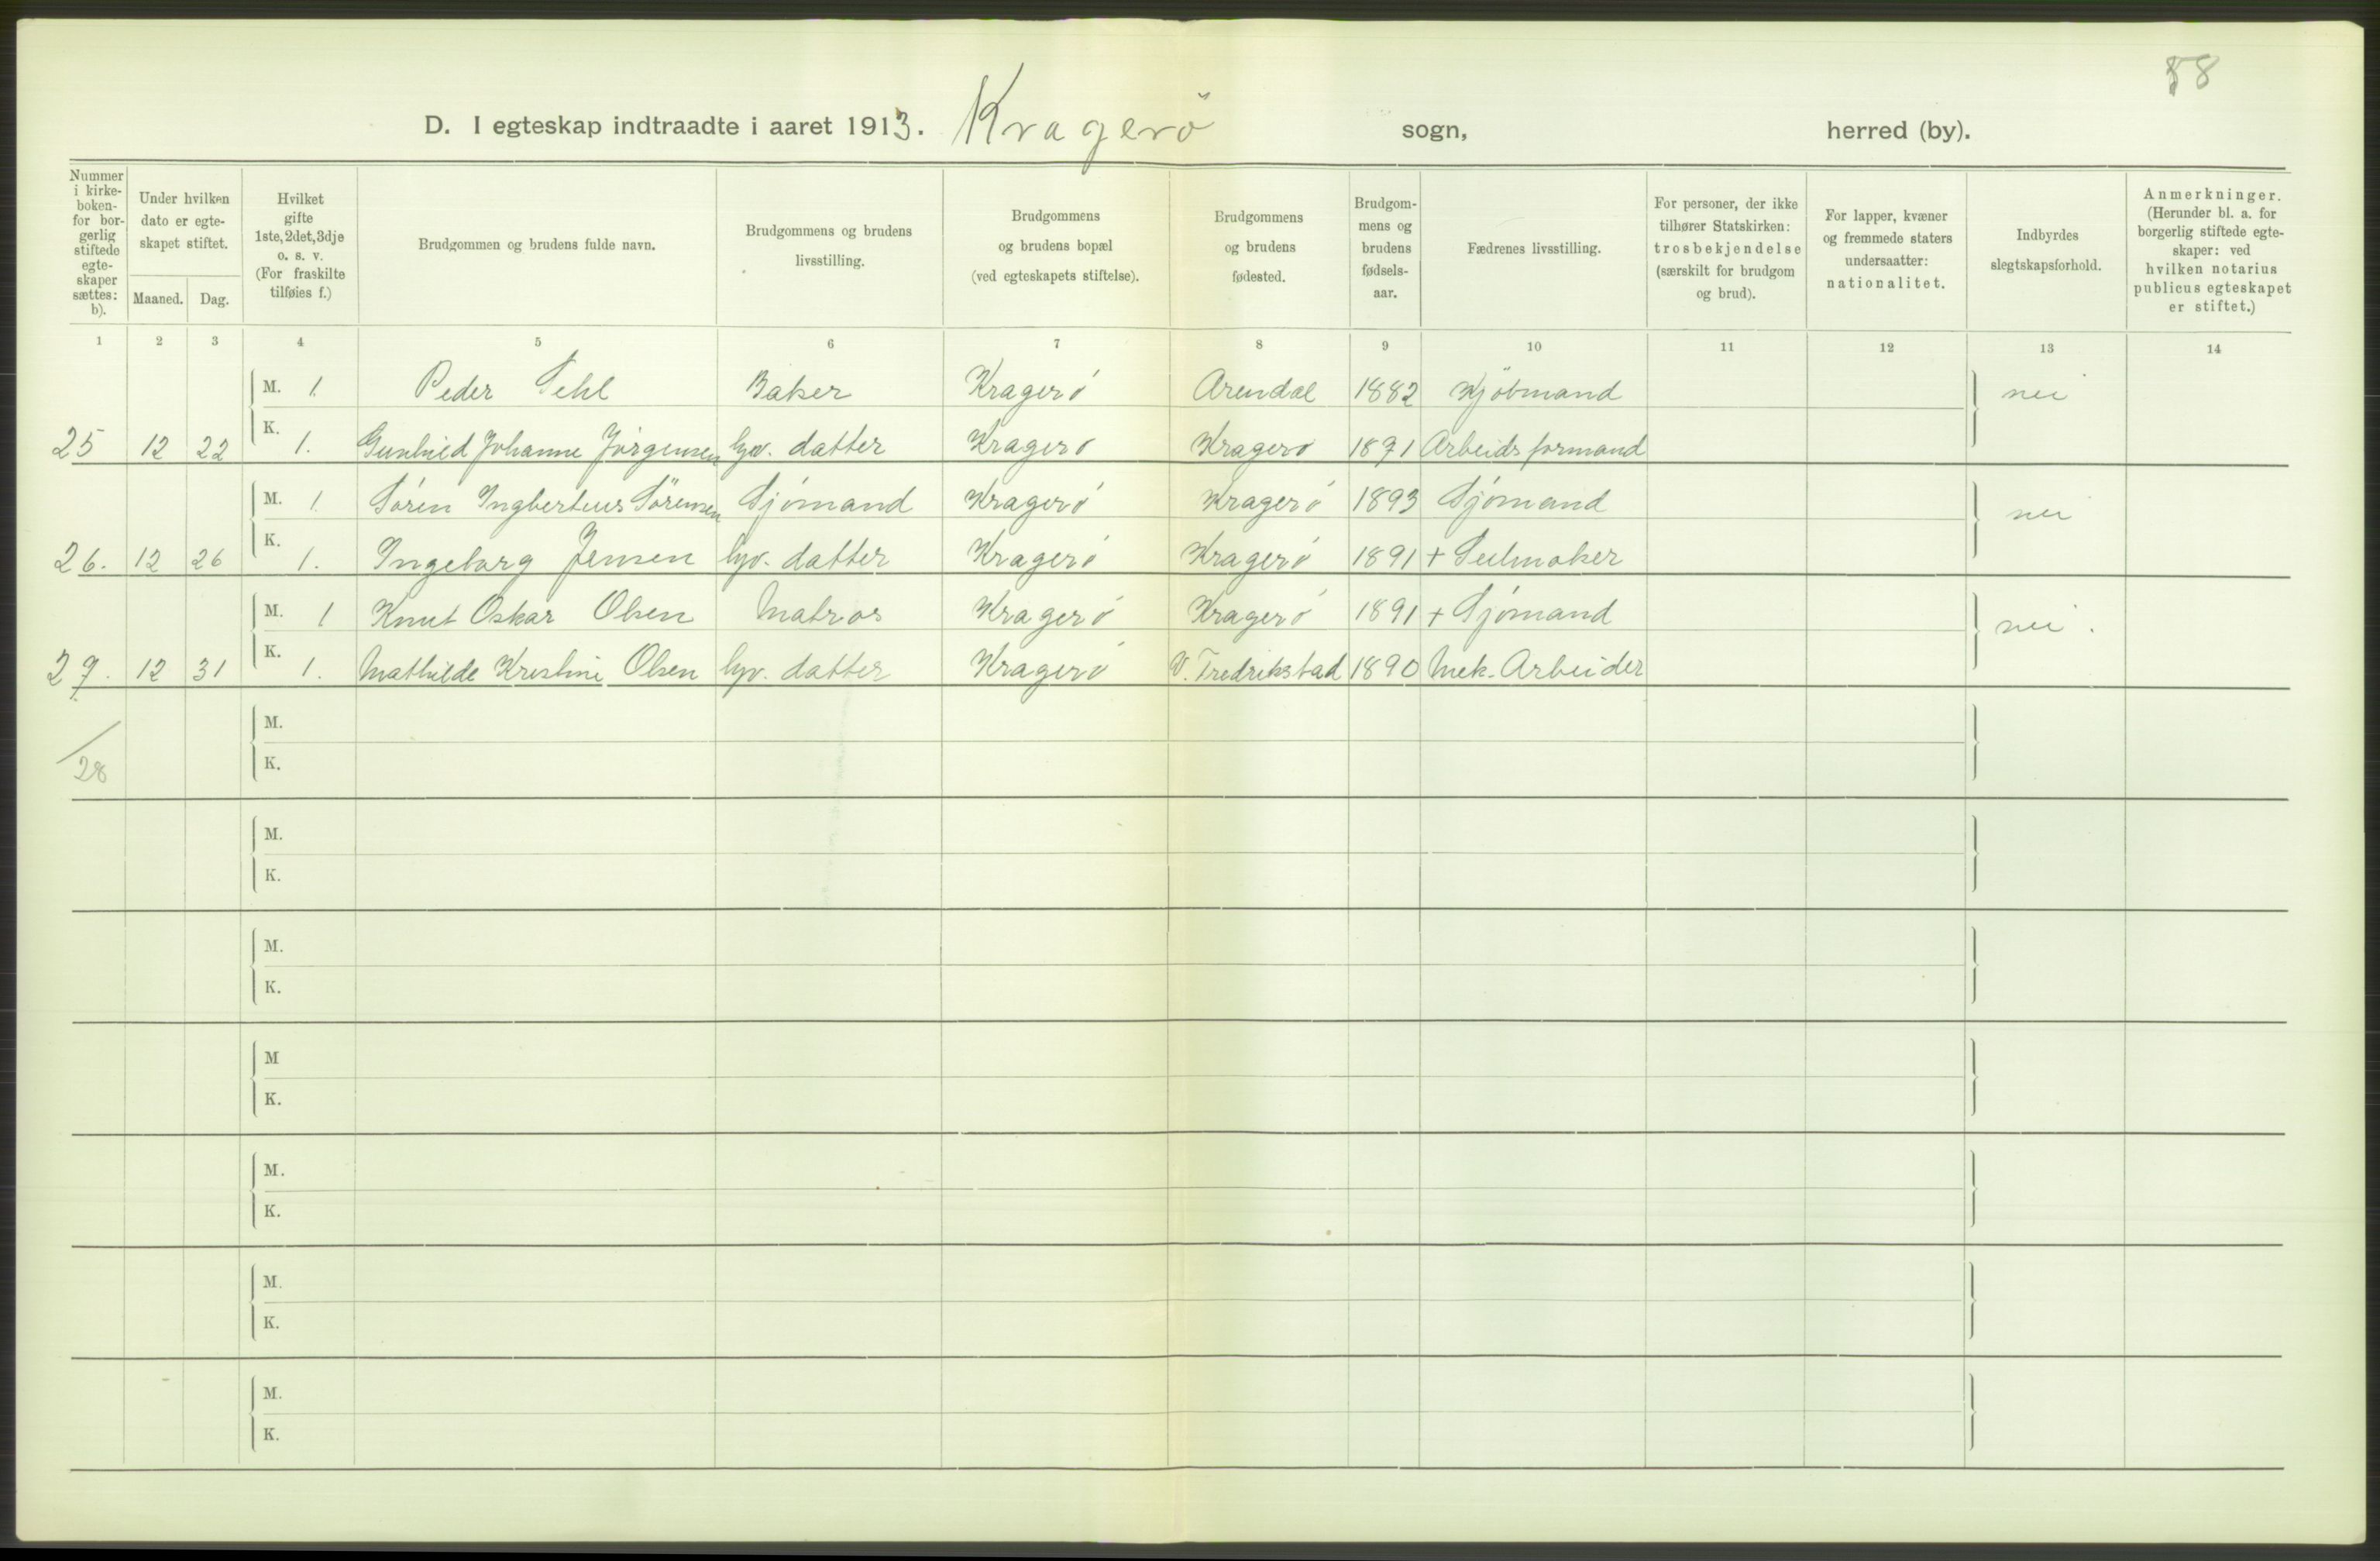 58
D. I egteskap indtraadte i aaret 1913. Kragerö sogn, herred (by).
Nummer i kirke-boken for bor-gerlig stiftede egte-skaper sættes: b).
Under hvilken dato er egte-skapet stiftet.
Maaned. Dag.
Hvilket gifte 1ste, 2det, 3dje o. s. v. (For fraskilte tilføies f.)
Brudgommen og brudens fulde navn.
Brudgommens og brudens livsstilling.
Brudgommens og brudens bopæl (ved egteskapets stiftelse).
Brudgommens og brudens fødested.
Brudgom-mens og brudens fødsels-aar.
Fædrenes livsstilling.
For personer, der ikke tilhører Statskirken: trosbekjendelse (særskilt for brudgom og brud).
For lapper, kvæner og fremmede staters undersaatter: nationalitet.
Indbyrdes slegtskapsforhold.
Anmerkninger. (Herunder bl. a. for borgerlig stiftede egte-skaper: ved hvilken notarius publicus egteskapet er stiftet.)
1 2 3 4 5 6 7 8 9 10 11 12 13 14
M. 1. Peder Sehl Baker Kragerö Arendal 1882 Kjöbmand nei
25 12 22 K. 1. Gunhild Johanne Jörgensen hjv. datter Kragerö Kragerö 1871 Arbeidsformand
M. 1. Sören Ingbertius Sörensen Sjömand Kragerö Kragerö 1893 Sjömand nei
26. 12 26 K. 1. Ingeborg Jensen hjv. datter Kragerö Kragerö 1891 + Seilmaker
M. 1 Knut Oskar Olsen Matros Kragerö Kragerö 1891 + Sjömand nei.
27. 12 31 K. 1. Mathilde Kristine Olsen hjv. datter Kragerö V. Fredrikstad 1890 Mek. Arbeider
M.
28 K.
M.
K.
M.
K.
M
K.
M.
K.
M.
K.
M.
K.